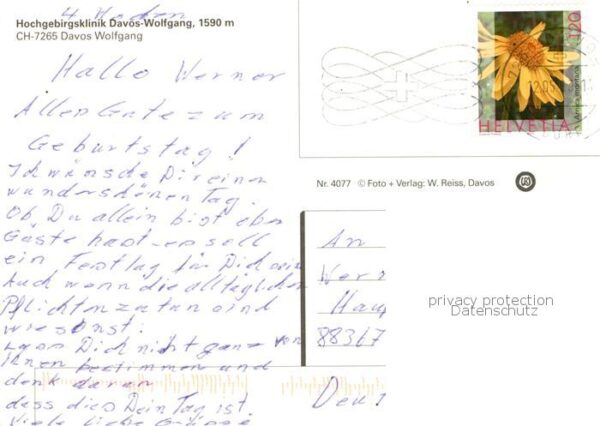 4. Maden
Hochgebirgsklinik Davos-Wolfgang, 1590 m
CH-7265 Davos Wolfgang
Hallo Werner
Alles Gute zum
Geburtstag!
Ich wünsche Dir einen
wunderschönen Tag.
Ob Du allein bist oder
Gäste hast - es soll
ein Festtag für Dich sein
Auch wenn die alltäglichen
Pflichten zu tun sind
wie sonst.
Lass Dich nicht ganz von
ihnen bestimmen und
denk daran
dass dies Dein Tag ist.
Viele liebe Grüsse
120
Arnica montana
HELVETIA
Nr. 4077 © Foto + Verlag: W. Reiss, Davos
An
Wer
Hau
88367
Deu
privacy protection
Datenschutz